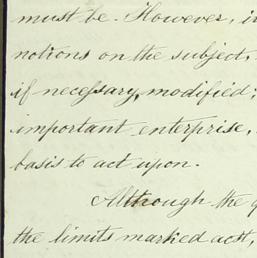 must be. However, i
notions on the subject,
if necessary, modified;
important enterprise,
basis to act upon.
Although the
the limits marked out,